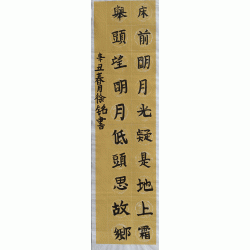 床前明月光疑是地上霜
舉頭望明月低頭思故鄉
辛丑春月徐銘書